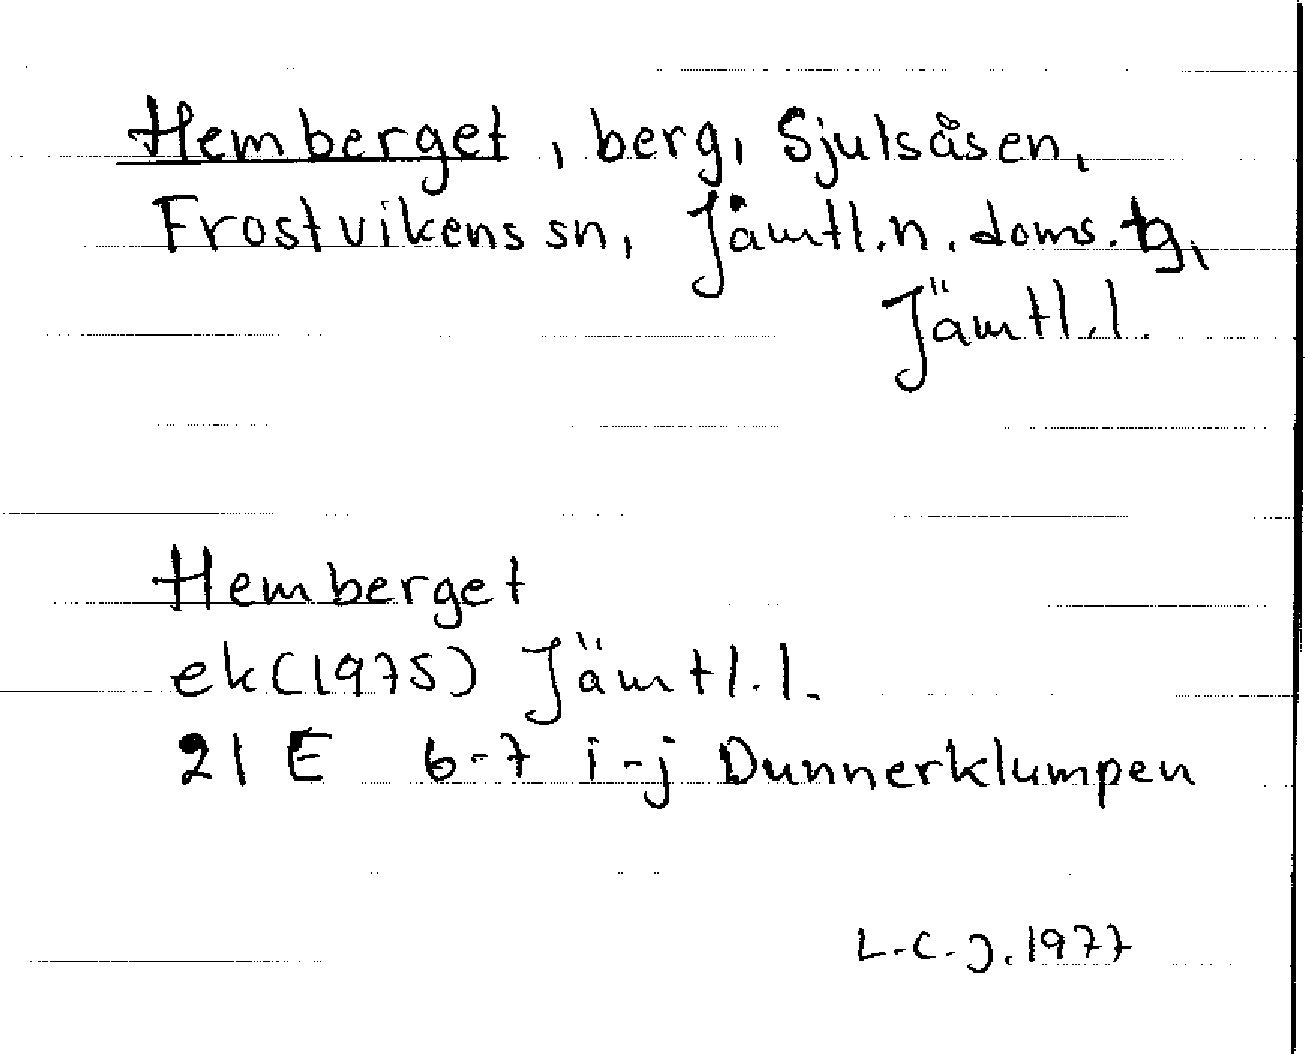 Hemberget, berg, Sjulsåsen,
Frostvikens sn, Jämtl.n. doms. tg,
Jämtl.l.
Hemberget
ek(1975) Jämtl.l.
21 E 6-7 i-j Dunnerklumpen
L.C.J. 1977